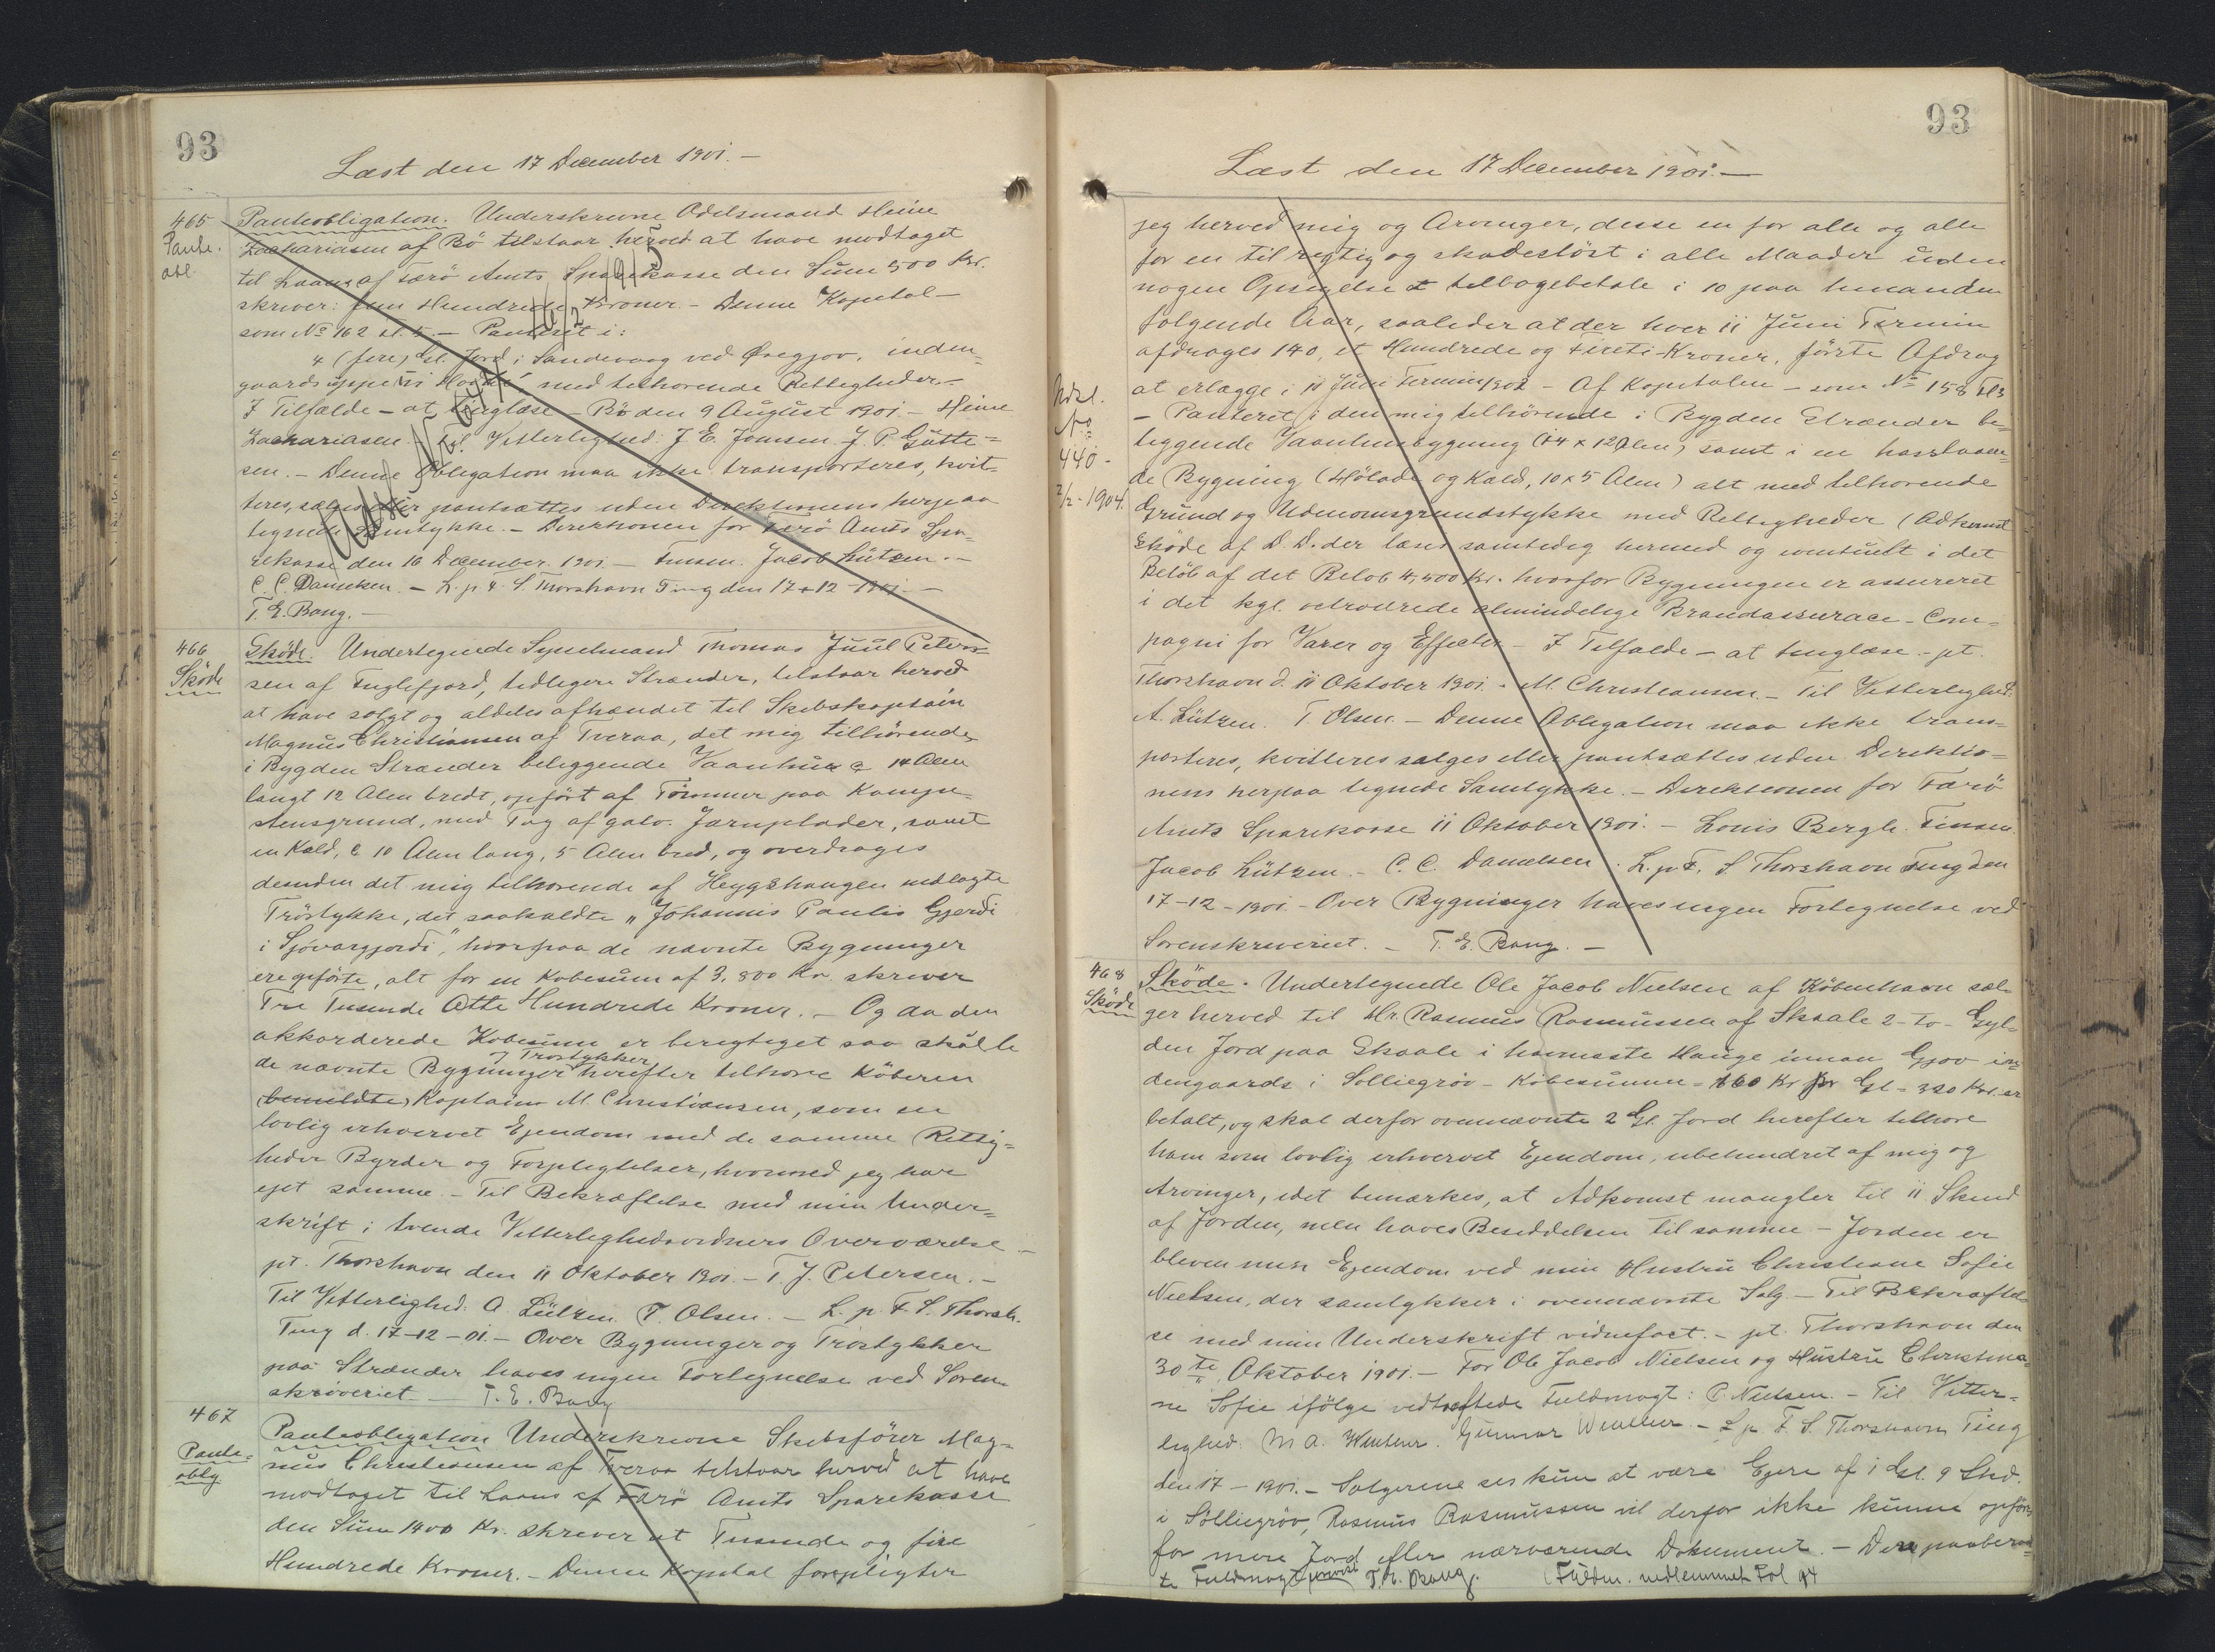 93
Læst den 17 December 1901. —
465
Pante-
obl.
Panteobligation. Underskrevne Odelsmand Heine
Zachariasen af Bö tilstaar herved at have modtaget
til Laans af Færö Amts Sparekasse den Sum 500 Kr.
skriver: fem Hundrede Kroner. – Denne Kapital –
som No 162 – Panteret i:
4 (fire) Gl. Jord i Sandevaag ved Øregjov, inden-
gaards med tilhorende Rettigheder. –
I Tilfælde – at tinglæse – Bö den 9 August 1901. – Heine
Zachariasen. – Til Vitterlighed: J. E. Joensen. J. P. Gutte-
sen. – Denne Obligation maa ikke transporteres, kvit-
teres, sælges eller pantsættes uden Direktionens herpaa
tegnede Samtykke. – Direktionen for Færö Amts Spa-
rekasse den 16 December 1901. – Finsen. Jacob Lützen. –
C. C. Danielsen. – L. p. F. S. Thorshavn Ting den 17-12-1901. –
T. E. Bang. –
466
Sköde
Sköde. Undertegnede Sysselmand Thomas Juul Peter-
sen af Fuglefjord, tidligere Strænder, tilstaar herved
at have solgt og aldeles afhændet til Skibskaptain
Magnus Christiansen af Tveraa, det mig tilhörende
i Bygden Strænder beliggende Vaanhus c 14 Alen
langt 12 Alen bredt, opfört af Tömmer paa Kampe-
stensgrund, med Tag af galv. Jærnplader, samt
en Kald, c 10 Alen lang, 5 Alen bred, og overdrages
desuden det mig tilhorende af Heygshaugen udlagte
Tröstykke, det saakaldte „Johannis Paulis Gjerdi
i Sjóvargjordi", hvorpaa de nævnte Bygninger
ere opförte, alt for en Kobesum af 3,800 Kr. skriver
Tre Tusende Otte Hundrede Kroner. – Og da den
akkorderede Kobesum er berigtiget saa skulle
de nævnte Bygninger herefter tilhore Köberen
Tröstykker
bemeldte Kaptain M. Christiansen, som en
lovlig erhvervet Ejendom med de samme Rettig-
heder Byrder og Forpligtelser, hvormed jeg har
ejet samme. – Til Bekræftelse med min Under-
skrift i tvende Vitterlighedsvidners Overværelse. –
pt. Thorshavn den 11 Oktober 1901. – T. J. Petersen. –
Til Vitterlighed: A. Lützen. T. Olsen. – L. p. F. S. Thorsh.
Ting d. 17-12-01. – Over Bygninger og Tröstykker
paa Strænder haves ingen Fortegnelse ved Soren-
skriveriet. – T. E. Bang
467
Pante-
oblg
Panteobligation Underskrevne Skibsförer Mag-
nus Christiansen af Tveraa tilstaar herved at have
modtaget til Laans af Færö Amts Sparekasse
den Sum 1400 Kr. skriver et Tusinde og fire
Hundrede Kroner. – Denne Kapital forpligter
93
Læst den 17 December 1901. —
jeg herved mig og Arvinger, desse en for alle og alle
for en til rigtig og skadeslöst i alle Maader uden
nogen Opsigelse at tilbagebetale i 10 paa hinanden
fölgende Aar, saaledes at der hver 11 Juni Termin
afdrages 140, et Hundrede og Fireti Kroner, förste Afdrag
at erlægge i 11 Juni Termin 1902 – Af Kapitalen – som No 158
– Panteret i den mig tilhörende i Bygden Strænder be-
liggende Vaanhusbygning (14 x 12 Alen) samt i en hosstaaen-
de Bygning (Hölade og Kald, 10 x 5 Alen) alt med tilhorende
Grund og Udenomsgrundstykke med Rettigheder (Adkomst
Sköde af D. D. der læses samtidig hermed og eventuelt i det
Belöb af det Belöb 4,500 Kr. hvorfor Bygningen er assureret
i det kgl. octroierede almindelige Brandassurace-Com-
pagni for Varer og Effecter – I Tilfælde – at tinglæse – pt.
Thorshavn d. 11 Oktober 1901. – M. Christiansen. – Til Vitterlighed:
A. Lützen. T. Olsen. – Denne Obligation maa ikke trans-
porteres, kvitteres sælges eller pantsættes uden Direktio-
nens herpaa tegnede Samtykke. – Direktionen for Færö
Amts Sparekasse 11 Oktober 1901. – Louis Bergh. Finsen.
Jacob Lützen. – C. C. Danielsen. L. p. F. S. Thorshavn Ting den
17-12-1901. – Over Bygninger haves ingen Fortegnelse ved
Sorenskriveriet. – T. E. Bang. –
Udsl.
No
440 –
2/2-1904.
468
Sköde
Sköde. Undertegnede Ole Jacob Nielsen af Köbenhavn sæl-
ger herved til Hr. Rasmus Rasmussen af Skaale 2 – to – Gyl-
den Jord paa Skaale i haimasta Hauge innan Gjov in-
dengaards i Solliegröv – Köbesummen – 160 Kr pr Gl = 320 Kr. er
betalt, og skal derfor ovennævnte 2 Gl. Jord herefter tilhore
ham som lovlig erhvervet Ejendom, ubehindret af mig og
Arvinger, idet bemærkes, at Adkomst mangler til 11 Skind
af Jorden, men haves Besiddelsen til samme – Jorden er
bleven min Ejendom ved min Hustru Christiane Sofie
Nielsen, der samtykker i ovennævnte Salg – Til Bekræftel-
se med min Underskrift vidnefast. – pt. Thorshavn den
30te Oktober 1901. – For Ole Jacob Nielsen og Hustru Christia-
ne Sofie ifölge vedhæftede Fuldmagt: P. Nielsen. – Til Vitter-
lighed: M. A. Winther. Gunnar Winther. – L p. F. S. Thorshavn Ting
den 17 – 1901. – Sælgerne ses kun at være Ejere af 1 Gl. 9 Skd.
i Sölliegröv, Rasmus Rasmussen vil derfor ikke kunne opföres
for mere Jord efter nærværende Dokument. – Den paabero-
te Fuldmagt T. E. Bang. (Fuldm. indlemmet Fol 94